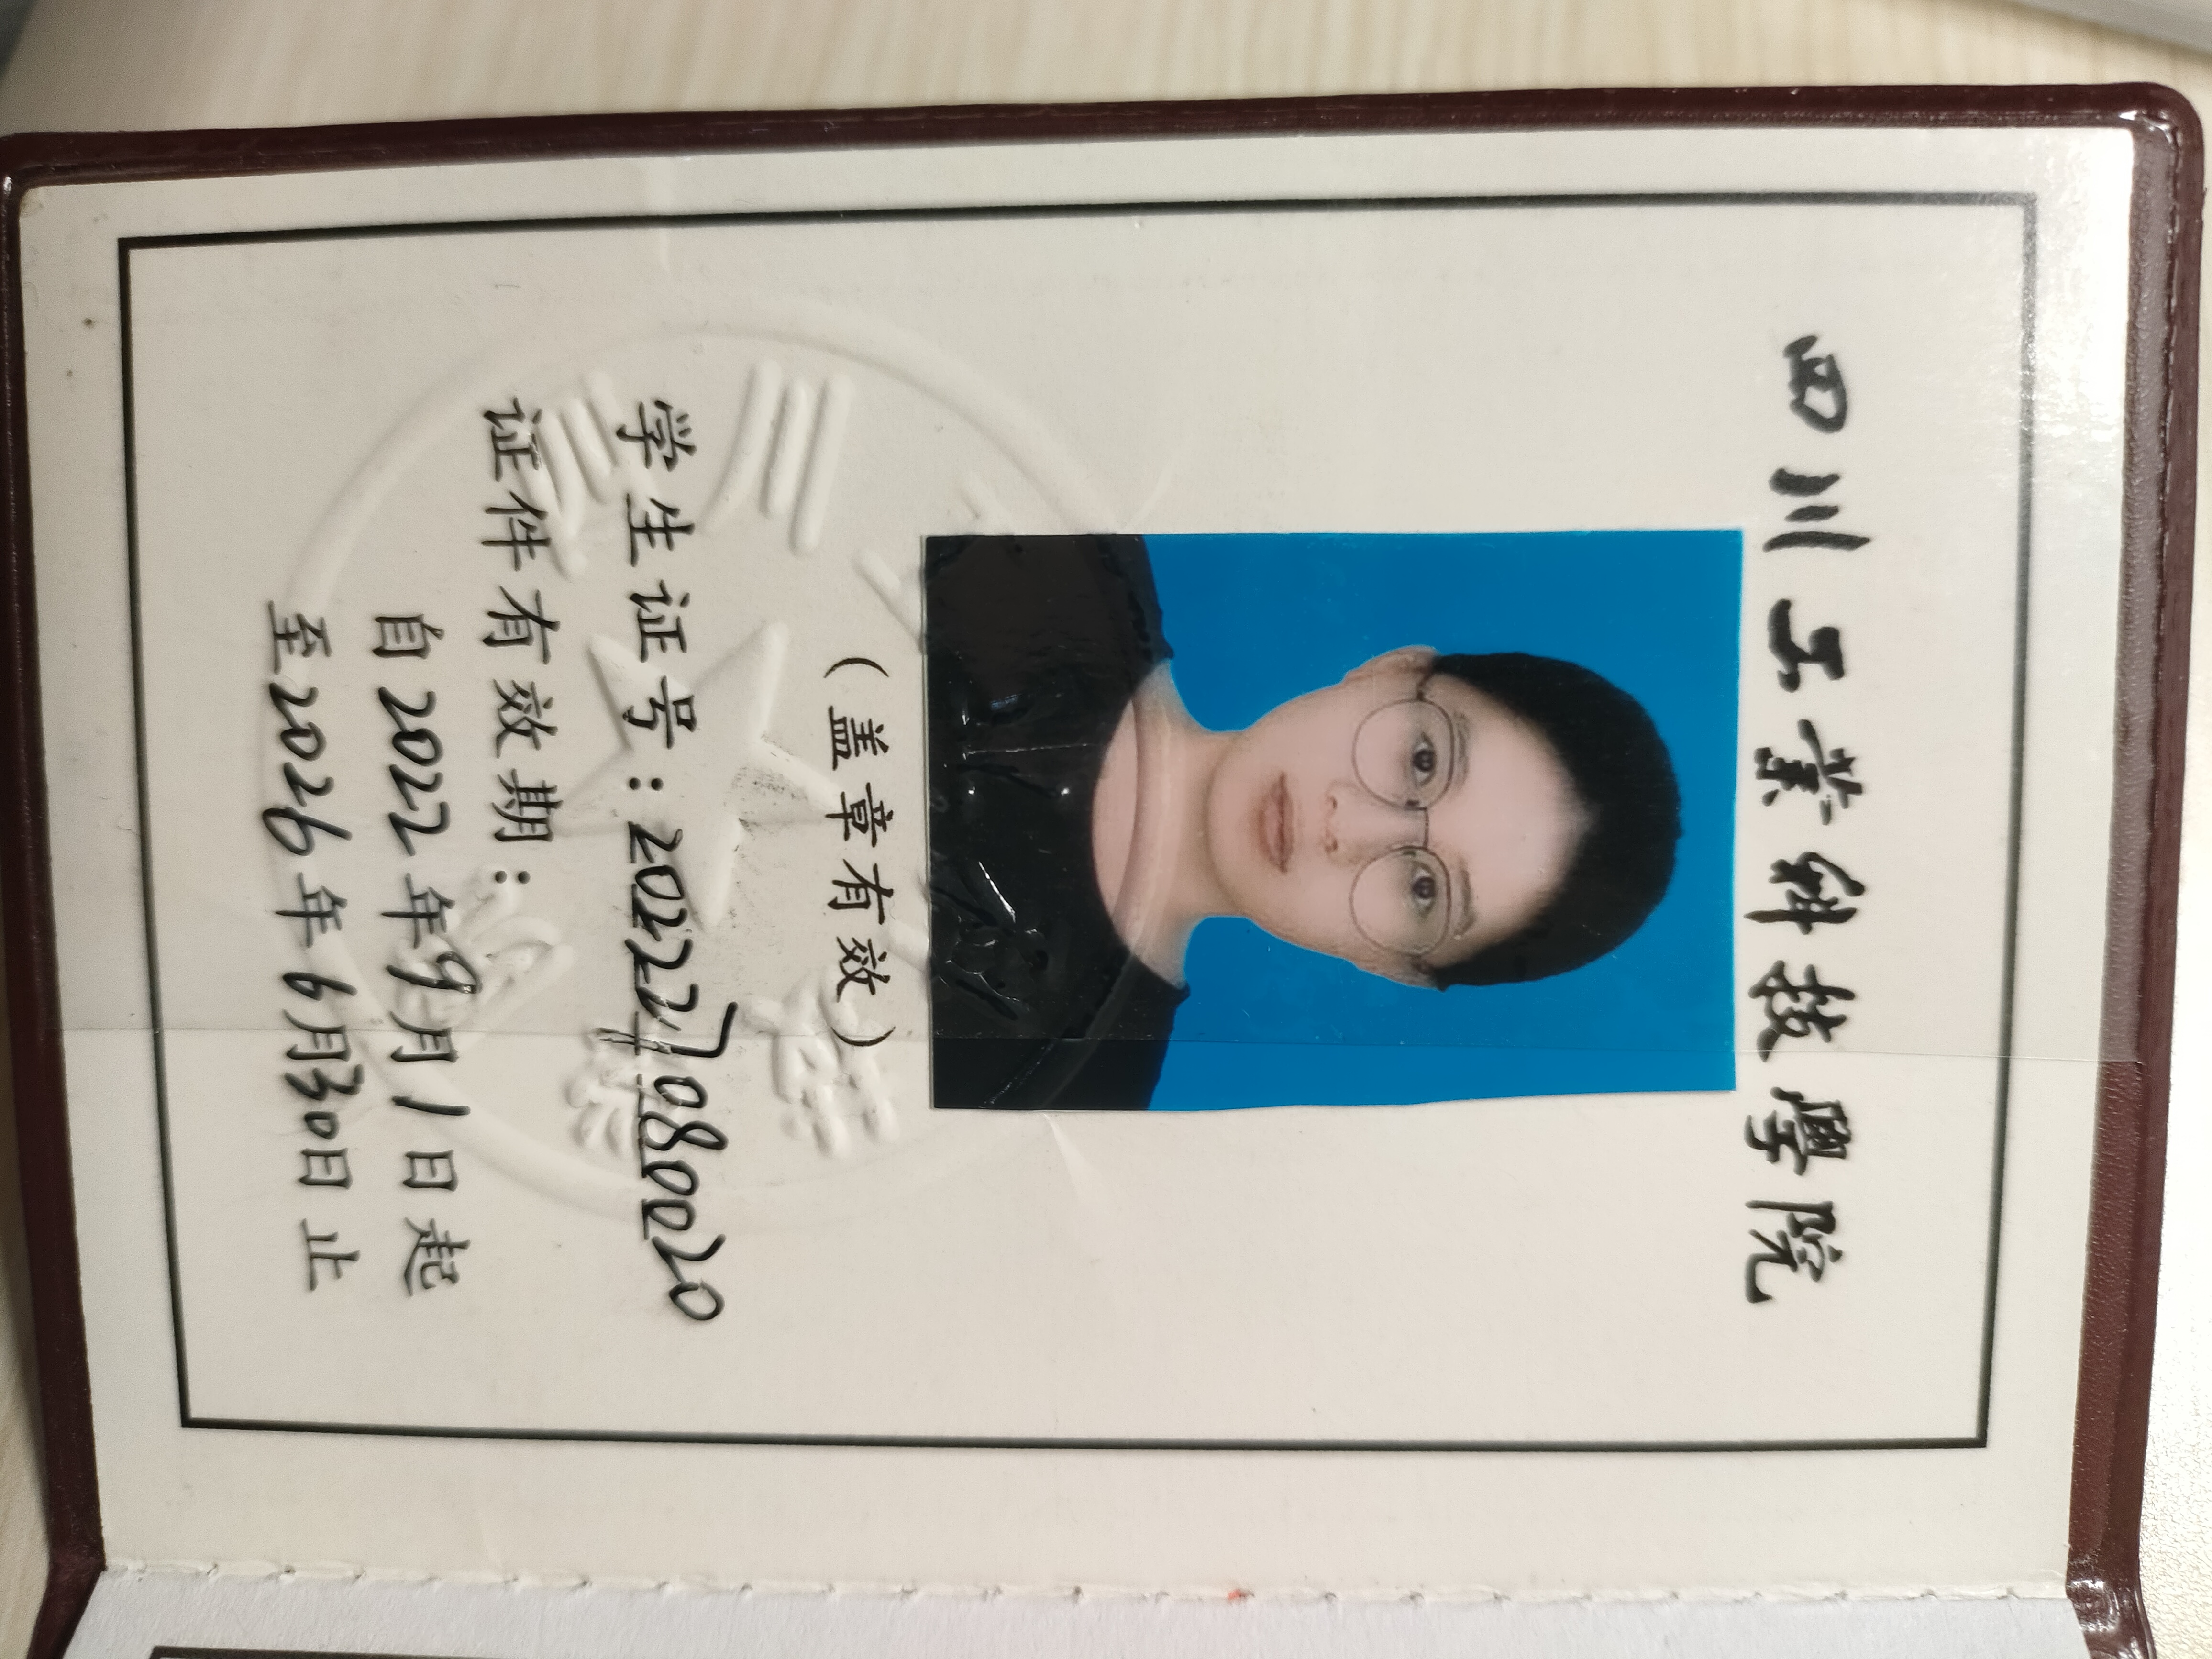 四川工業科技學院
（盖章有效）
学生证号：20227080020
证件有效期：
自2022年9月1日起
至2026年6月30日止